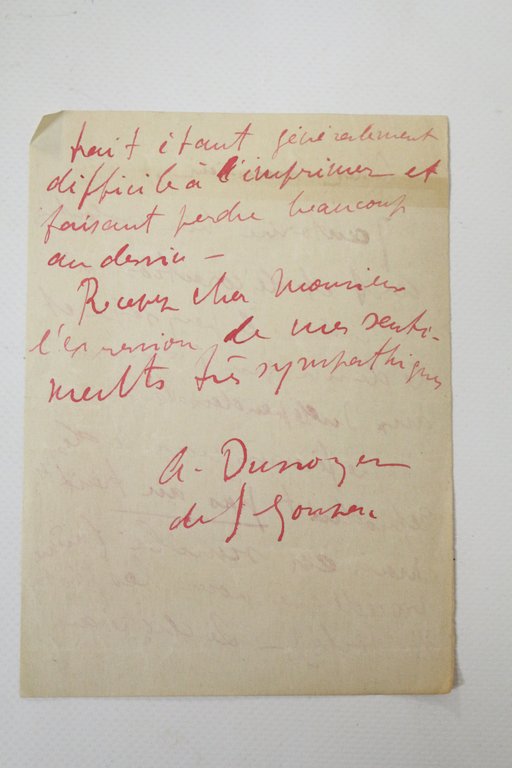 trait étant généralement
difficile à l'imprimer et
faisant perdre beaucoup
au dessin –
Recevez cher Monsieur
l'expression de mes senti-
ments très sympathiques
A. Dunoyer
de Segonzac